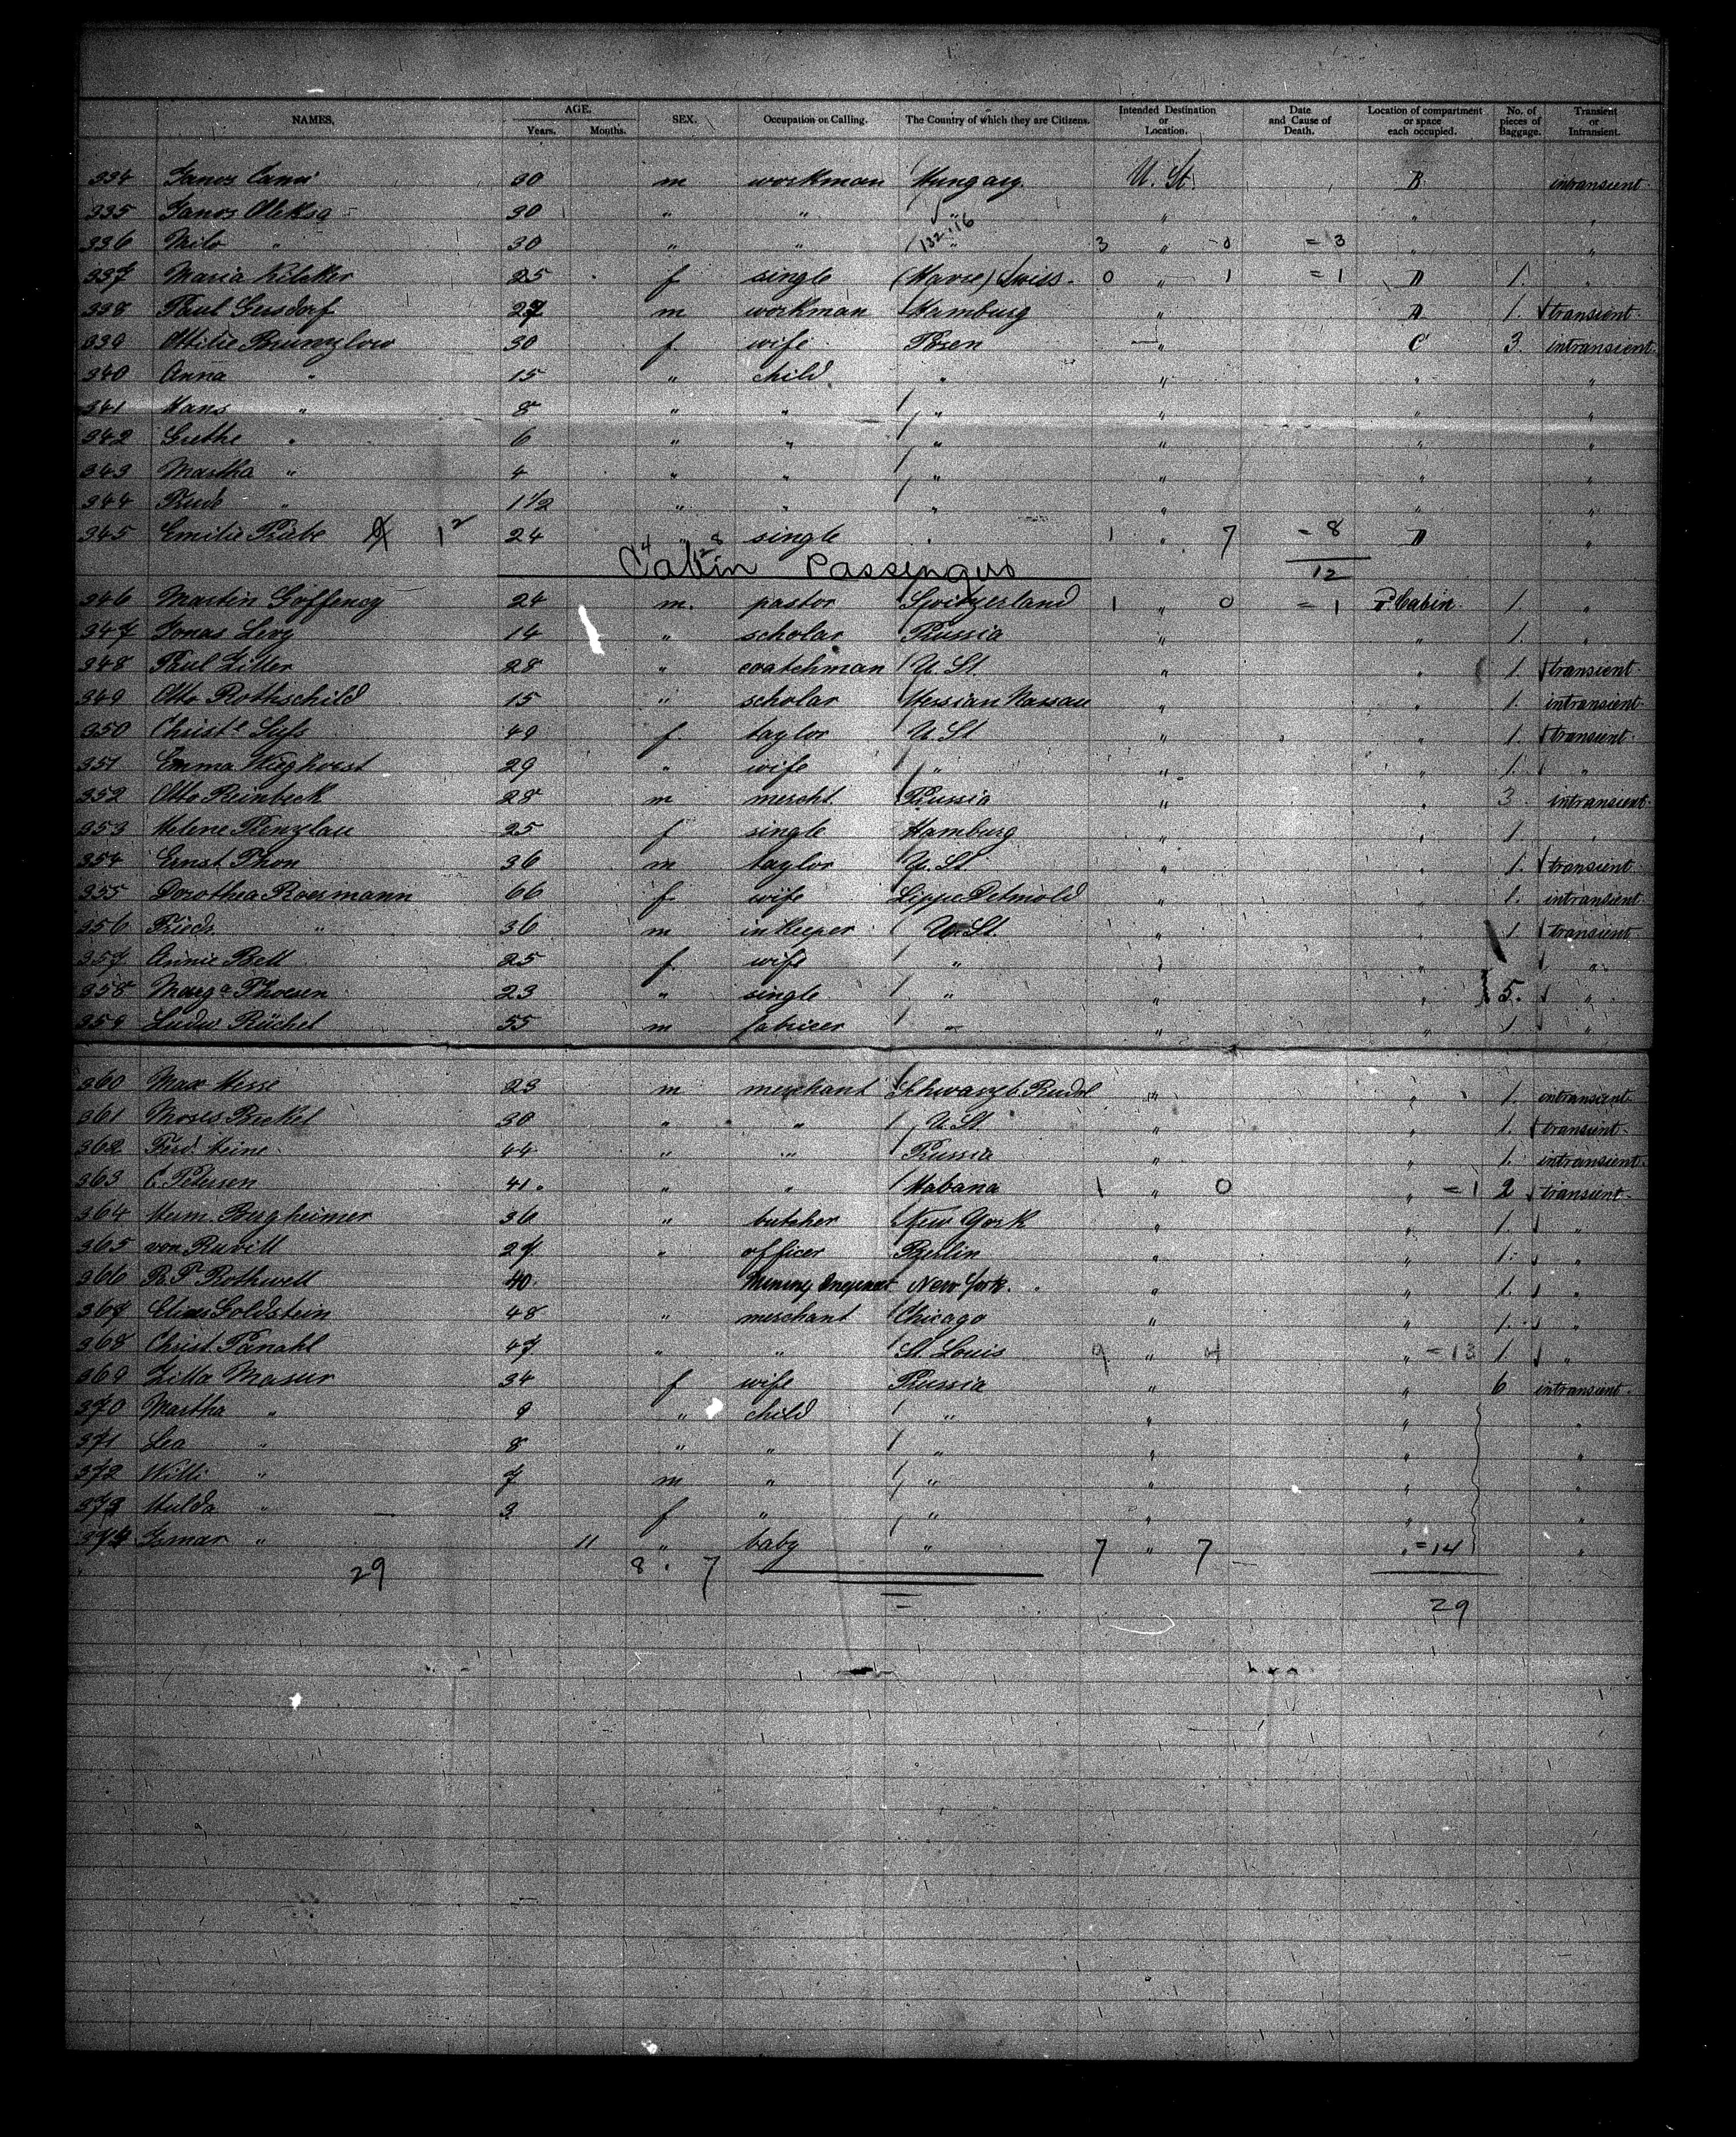 NAMES. AGE. Years. Months. SEX. Occupation or Calling. The Country of which they are Citizens. Intended Destination or Location. Date and Cause of Death. Location of compartment or space each occupied. No. of pieces of Baggage. Transient or Intransient.
334 Janos 30 m workman Hungary. U. St. B intransient.
335 Janos Oleksa 30 " " " " " "
336 " 30 " " 132.16 " 3 " 0 = 3 " "
337 Maria 25 f single (Havre) Swiss. 0 " 1 = 1 D 1. "
338 Paul Gersdorf 27 m workman Hamburg " 1. transient.
339 Ottilie Brumzlow 30 f wife Posen " C 3. intransient.
340 Anna " 15 " child " " " "
341 Hans " 8 " " " " " "
342 Grethe " 6 " " " " " "
343 Martha " 4 " " " " " "
344 " 1 1/2 " " " " " "
345 Emilie Rabe 12 24 4 " 28 single " 1 " 7 = 8 D "
Cabin Passengers 12
346 Martin 24 m. pastor Switzerland 1 " 0 = 1 Cabin. 1. "
347 Jonas Levy 14 " scholar Prussia " " 1. "
348 Paul Ziller 28 " coatchman U. St. " " 1. transient.
349 Otto Rothschild 15 " scholar Hessian Nassau " " 1. intransient.
350 Christe 49 f. taylor U. St. " " 1. transient.
351 Emma Wieghorst 29 " wife " " " 1. "
352 Otto Reinbeck 28 m mercht. Prussia " " 3. intransient.
353 Helene Prenzlau 25 f single Hamburg " " 1. "
354 Ernst Thon 36 m taylor U. St. " " 1. transient.
355 Dorothea Roesmann 66 f wife Lippe Detmold " " 1. intransient.
356 Friedr. " 36 m inkeeper U. St. " " 1. transient
357 Annie Bell 25 f. wife " " " "
358 Marga Thoesen 23 " single " " " 5. "
359 Ludw Rüchel 55 m fabricer " " " 1 "
360 Max Hesse 23 m merchant Schwarzb. Rudol " " 1. intransient.
361 Moses 30 " " U. St. " " 1. transient.
362 Ferd. Heine 44 " " Prussia " " 1. intransient.
363 C. Petersen 41. " " Habana 1 " 0 " = 1 2 transient.
364 Herm. Bergheimer 36 " butcher New York " " 1. "
365 von Ruvill 27 " officer Berlin " " 1. "
366 R. P. Rothwell 40. Mining New York. " " 1. "
367 Goldstein 48 " merchant Chicago " " 1. "
368 Christ. Panahl 47 " " St. Louis 9 " 4 " = 13 1. "
369 Masur 34 f wife Prussia " " 6 intransient.
370 Martha " 9 " child " " " "
371 Lea " 8 " " " " " "
372 Willi " 7 m " " " " "
373 Hulda " 3 f " " " " "
374 " 11 " baby " 7 " 7 " = 14 "
29 8. 7 29